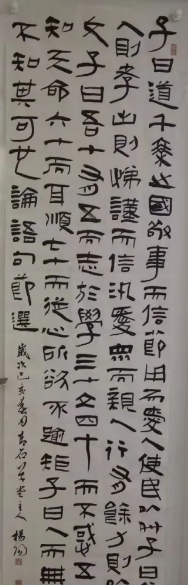 子曰道千乘之國敬事而信節用而愛人使民以時子曰
入則孝出則悌謹而信汎愛眾而親仁行有餘力則
文子曰吾十有五而志於學三十而立四十而不惑五
知天命六十而耳順七十而從心所欲不踰矩子曰人而無
不知其可也 論語句節選 歲次己亥